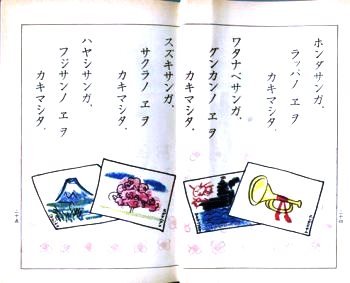 ホンダサンガ、
ラッパノ ヱ ヲ
カキマシタ。
ワタナベサンガ、
グンカンノ ヱ ヲ
カキマシタ。
スズキサンガ、
サクラノ ヱ ヲ
カキマシタ。
ハヤシサンガ、
フジサンノ ヱ ヲ
カキマシタ。
二十四
二十五